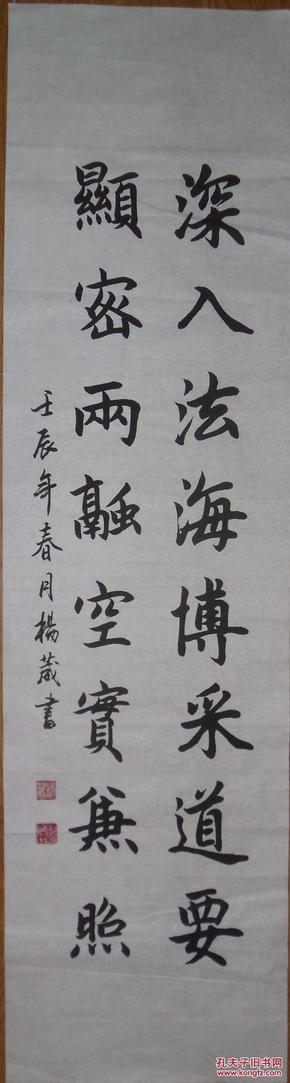 深入法海博采道要
顯密兩融空實兼照
壬辰年春月楊葳書
孔夫子旧书网
www.kongfz.com